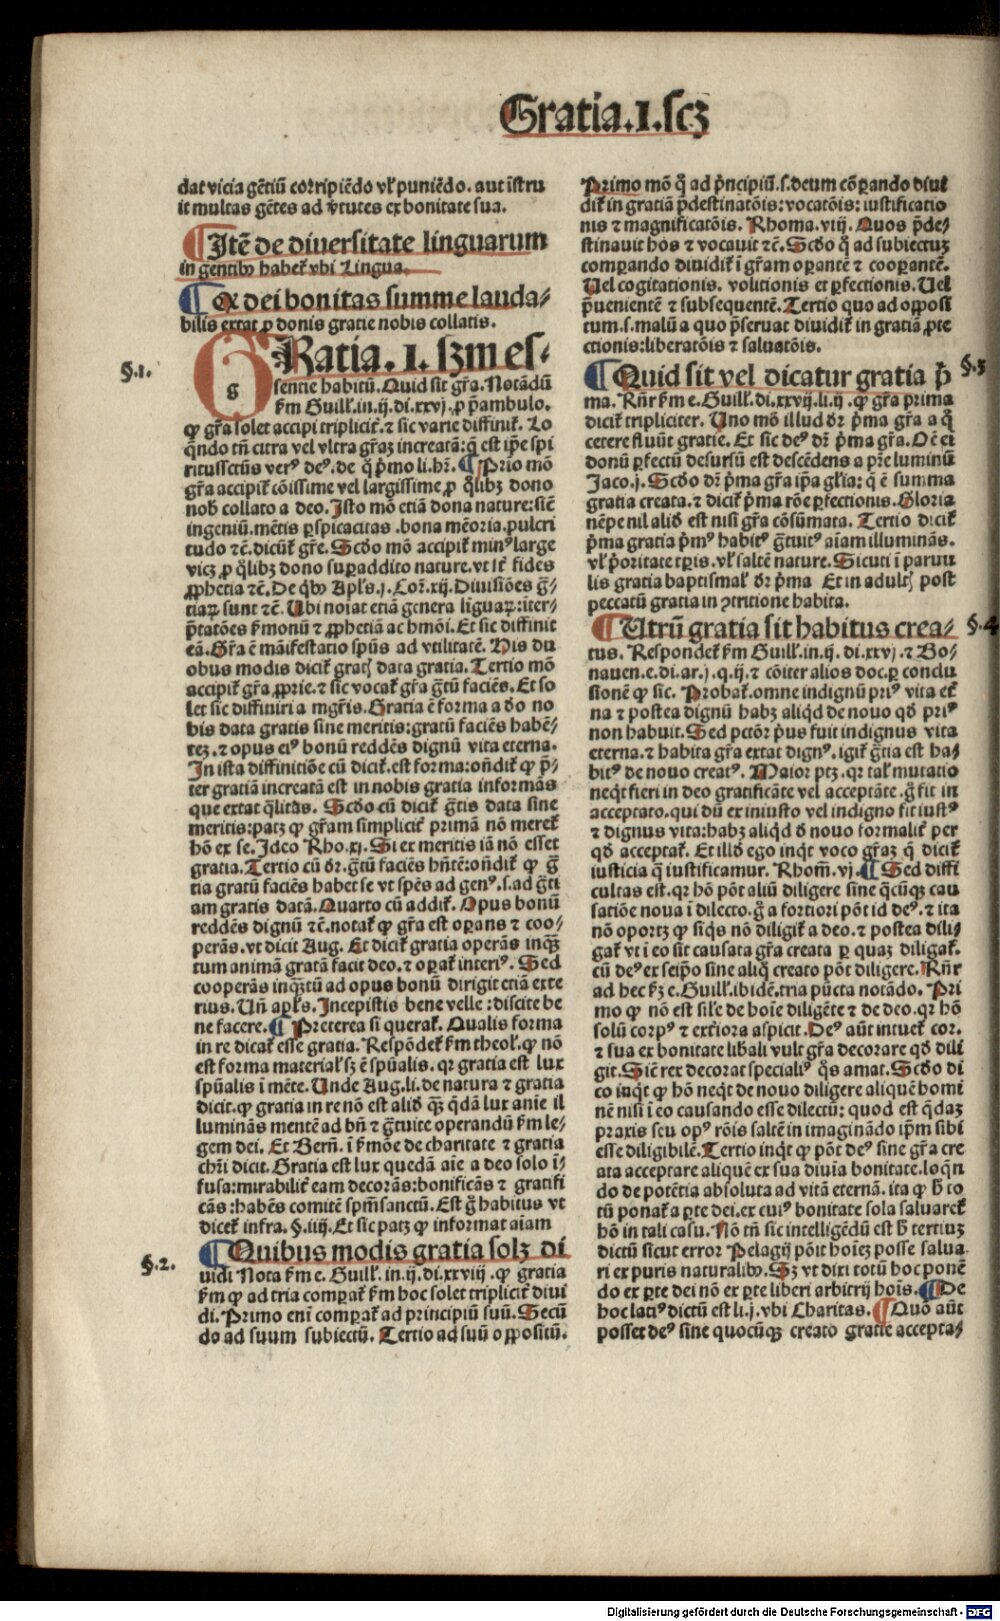 Gratia.I.scꝫ
dat vicia gētiū corripiēdo vl̓ puniēdo. aut īstru
it multas gētes ad v̓tutes ex bonitate sua.
¶ Itē de diuersitate linguarum
in gentibꝰ habet᷑ vbi Lingua.
¶ Ex dei bonitas summe lauda⸗
bilis extat ꝓ donis gratie nobis collatis.
§.1.
GRatia.I. sꝫm es⸗
sentie habitū. Quid sit gr̄a. Notādū
ẜm Guill̓. in.ij.di.xxvj. ꝓ p̄ambulo.
ꝙ gr̄a solet accipi triplicit̓. ⁊ sic varie diffinit᷑. Lo
q̄ndo tn̄ citra vel vltra gr̄aꝫ increatā: q̄ est ip̄e spi
ritussctūs verꝰ deꝰ. de q̊ p̓mo li. hr̄. ¶ Prīo mō
gr̄a accipit᷑ cōissime vel largissime ꝓ q̊libꝫ dono
nob̓ collato a deo. Isto mō etiā dona nature: sic̄
ingeniū. mētis ꝑspicacitas. bona mēoria. pulcri
tudo ⁊c̄. dicūt᷑ gr̄e. Scd̓o mō accipit᷑ minꝰ large
vicꝫ ꝓ q̊libꝫ dono suꝑaddito nature. vt st̄ fides
ꝓphetia ⁊c̄. De qͥbꝰ Apl̓s.j. Cor̄.xij. Diuisiōes g̓⸗
tiaꝝ sunt ⁊c̄. Ubi noiat etiā genera liguaꝝ: iter⸗
p̄tatōes ẜmonū ⁊ ꝓphetiā ac hmōi. Et sic diffinit᷑
eā. Gr̄a ē māifestatio spūs ad vtilitatē. His du
obus modis dicit᷑ gratꝭ data gratia. Tertio mō
accipit᷑ gr̄a ꝓprie. ⁊ sic vocat᷑ gr̄a g̓tū faciēs. Et so
let sic diffiniri a mgr̄is. Gratia ē forma a deo no
bis data gratis sine meritis: gratū faciēs habē⸗
teꝫ. ⁊ opus eiꝰ bonū reddēs dignū vita eterna.
In ista diffinitiōe cū dicit᷑. est forma: oñdit᷑ ꝙ p̄⸗
ter gratiā increatā est in nobis gratia informās
que extat q̄litas. Scd̓o cū dicit᷑ g̓tis data sine
meritis: patꝫ ꝙ gr̄am simplicit̓ primā nō meret᷑
hō ex se. Ideo Rho.xj. Si ex meritis iā nō esset
gratia. Tertio cū dr̄. g̓tū faciēs hñtē: oñdit᷑ ꝙ g̓
tia gratū faciēs habet se vt spēs ad genꝰ. s. ad g̓ti
am gratis datā. Quarto cū addit᷑. Opus bonū
reddēs dignū ⁊c̄. notat᷑ ꝙ gr̄a est oꝑans ⁊ coo⸗
perās. vt dicit Aug. Et dicit᷑ gratia operās inqꝫ̄
tum animā gratā facit deo. ⁊ oꝑat᷑ interiꝰ. Sed
cooperās inqꝫ̄tū ad opus bonū dirigit etiā exte
rius. Uñ apl̓s. Incepistis bene velle: discite be
ne facere. ¶ Preterea si querat᷑. Qualis forma
in re dicat᷑ esse gratia. Respōdet᷑ ẜm theol̓. ꝙ nō
est forma material̓ sꝫ ē spūalis. qr gratia est lux
spūalis ī mēte. Unde Aug. li. de natura ⁊ gratia
dicit. ꝙ gratia in re nō est aliđ qꝫ̄ q̄dā lux anīe il
luminās mentē ad bñ ⁊ g̓tuite operandū ẜm le⸗
gem dei. Et Bern̄. ī ẜmōe de charitate ⁊ gratia
chr̄i dicit. Gratia est lux quedā aīe a deo solo ī⸗
fusa: mirabilit̓ eam decorās: bonificās ⁊ gratifi
cās: habēs comitē spm̄ sanctū. Est g̊ habitus vt
dicet᷑ infra. §.iiij. Et sic patꝫ ꝙ informat aīam
§.2.
¶ Quibus modis gratia solꝫ di
uidi Nota ẜm e. Guill̓. in.ij.di.xxviij. ꝙ gratia
ẜm ꝙ ad tria comꝑat᷑ ẜm hoc solet triplicit̓ diui
di. Primo eni comꝑat᷑ ad principiū suū. Secū
do ad suum subiectū. Tertio ad suū oppositū.
Primo mō q̄ ad p̓ncipiū. s. deum cōꝑando diui
dit᷑ in gratiā p̄destinatōis: vocatōis: iustificatio
nis ⁊ magnificatōis. Rhoma. viij. Quos p̄de⸗
stinauit hos ⁊ vocauit ⁊c̄. Scd̓o q̄ ad subiectuꝫ
comꝑando diuidit᷑ ī gr̄am oꝑantē ⁊ cooꝑantē.
Uel cogitationis. volitionis et ꝑfectionis. Uel
p̄uenientē ⁊ subsequentē. Tertio quo ad opposi
tum. s. malū a quo p̄seruat diuidit᷑ in gratiā ꝓte
ctionis: liberatōis ⁊ saluatōis.
§.3
¶ Quid sit vel dicatur gratia p̓
ma. Rn̄r ẜm e. Guill̓. di.xxvij. li.ij. ꝙ gr̄a prima
dicit᷑ tripliciter. Uno mō illud dr̄ p̓ma gr̄a a q̄
cetere fluūt gratie. Et sic deꝰ dr̄ p̓ma gr̄a. Oē ei
donū ꝑfectū desursū est descēdens a pr̄e luminū
Jaco.j. Scd̓o dr̄ p̓ma gr̄a ip̄a gl̓ia: q̄ ē summa
gratia creata. ⁊ dicit᷑ p̓ma rōe ꝑfectionis. Gloria
nēpe nil aliđ est nisi gr̄a cōsūmata. Tertio dicit᷑
p̓ma gratia p̓mꝰ habitꝰ g̓tuitꝰ aīam illuminās.
vl̓ p̓oritate tꝑis. vl̓ saltē nature. Sicuti ī paruu
lis gratia baptismal̓ dr̄ p̓ma Et in adultꝭ post
peccatū gratia in ꝯtritione habita.
§.4
¶ Utrū gratia sit habitus crea⸗
tus. Respondet᷑ ẜm Guill̓. in.ij. di.xxvj. ⁊ Bo⸗
nauen. e. di. ar.j. q.ij. ⁊ cōiter alios doc. ꝑ conclu
sionē ꝙ sic. Probat᷑. omne indignū priꝰ vita et᷑
na ⁊ postea dignū habꝫ aliqͥd de nouo qđ priꝰ
non habuit. Sed pctōr p̓us fuit indignus vita
eterna. ⁊ habita gr̄a extat dignꝰ. igit᷑ g̓tia est ha⸗
bitꝰ de nouo creatꝰ. Maior ptꝫ. qr tal̓ mutatio
neqͥt fieri in deo gratificāte vel acceptāte. g̊ fit in
acceptato. qui dū ex iniusto vel indigno fit iustꝰ
⁊ dignus vita: habꝫ aliqͥd d̓ nouo formalit̓ per
qđ acceptat᷑. Et illđ ego inqͥt voco gr̄aꝫ q̄ dicit᷑
iusticia q̄ iustificamur. Rhom̄. vj. ¶ Sed diffi
cultas est. qr hō pōt aliū diligere sine q̄cūqꝫ cau
satiōe noua ī dilecto. g̊ a fortiori pōt id deꝰ. ⁊ ita
nō oportꝫ ꝙ siqͥs nō diligit᷑ a deo. ⁊ postea dili⸗
gat᷑ vt ī eo sit causata gr̄a creata ꝑ quaꝫ diligat᷑.
cū deꝰ ex seip̄o sine aliq̊ creato pōt diligere. Rn̄r
ad hec ẜꝫ e. Guill̓. ibidē. tria pūcta notādo. Pri
mo ꝙ nō est sil̓e de hoīe diligēte ⁊ de deo. qr hō
solū corpꝰ ⁊ ext̓iora aspicit. Deꝰ aūt intuet᷑ cor.
⁊ sua ex bonitate lib̓ali vult gr̄a decorare qđ dili
git. Sic̄ rex decorat specialiꝰ qͦs amat. Scd̓o di
co inqͥt ꝙ hō neqͥt de nouo diligere aliquē homi
nē nisi ī eo causando esse dilectū: quod est q̄daꝫ
praxis seu opꝰ rōis saltē in imaginādo ip̄m sibi
esse diligibilē. Tertio inqͥt ꝙ pōt deꝰ sine gr̄a cre
ata acceptare aliquē ex sua diuīa bonitate. loqn̄
do de potētia absoluta ad vitā eternā. ita ꝙ h̓ to
tū ponat᷑ a ꝑte dei. ex cuiꝰ bonitate sola saluaret᷑
hō in tali casu. Nō tn̄ sic intelligēdū est h̓ tertiuꝫ
dictū sicut error Pelagij pōit hoīeꝫ posse salua
ri ex puris naturalibꝰ. Sꝫ vt dixi totū hoc ponē
do ex ꝑte dei nō ex ꝑte liberi arbitrij hoīs. ¶ De
hoc latiꝰ dictū est li.j. vbi Charitas. ¶ Quō aūt
posset deꝰ sine quocūqꝫ creato gratie accepta⸗
Digitalisierung gefördert durch die Deutsche Forschungsgemeinschaft - DFG